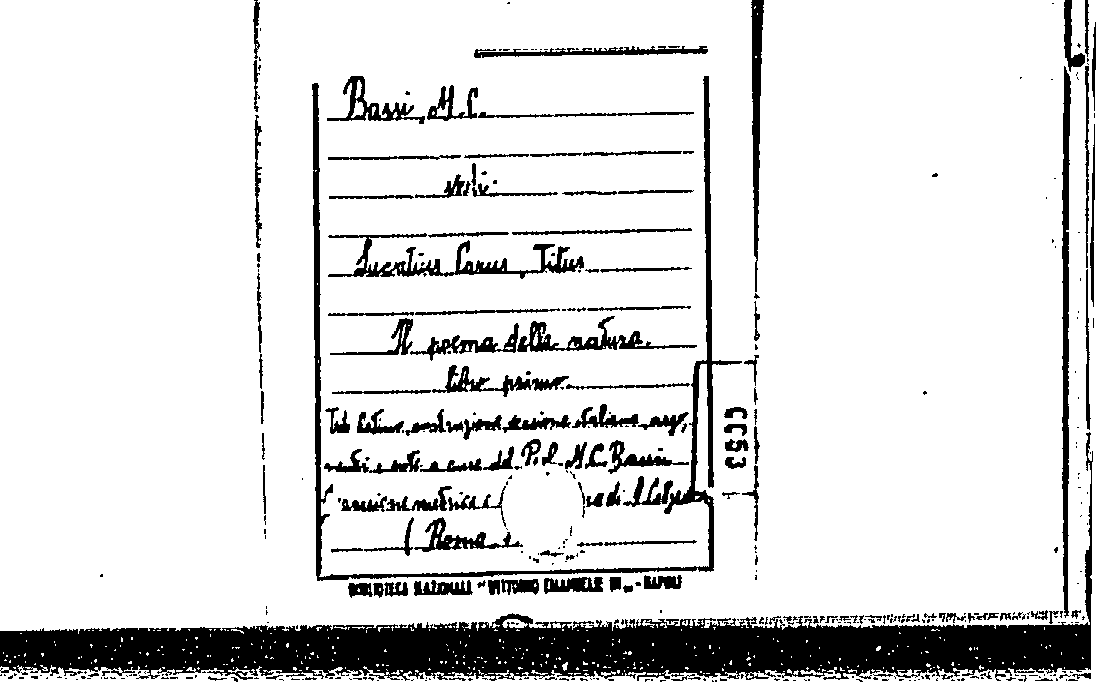 Bassi, M.C.
vedi:
Lucretius Carus, Titus
Il poema della natura.
libro primo
Testo latino, costruzione, versione italiana, argo,
menti e note a cura del Prof. M.C. Bassi
versione metrica a di
( Roma
0053
BIBLIOTECA NAZIONALE "VITTORIO EMANUELE III" - NAPOLI